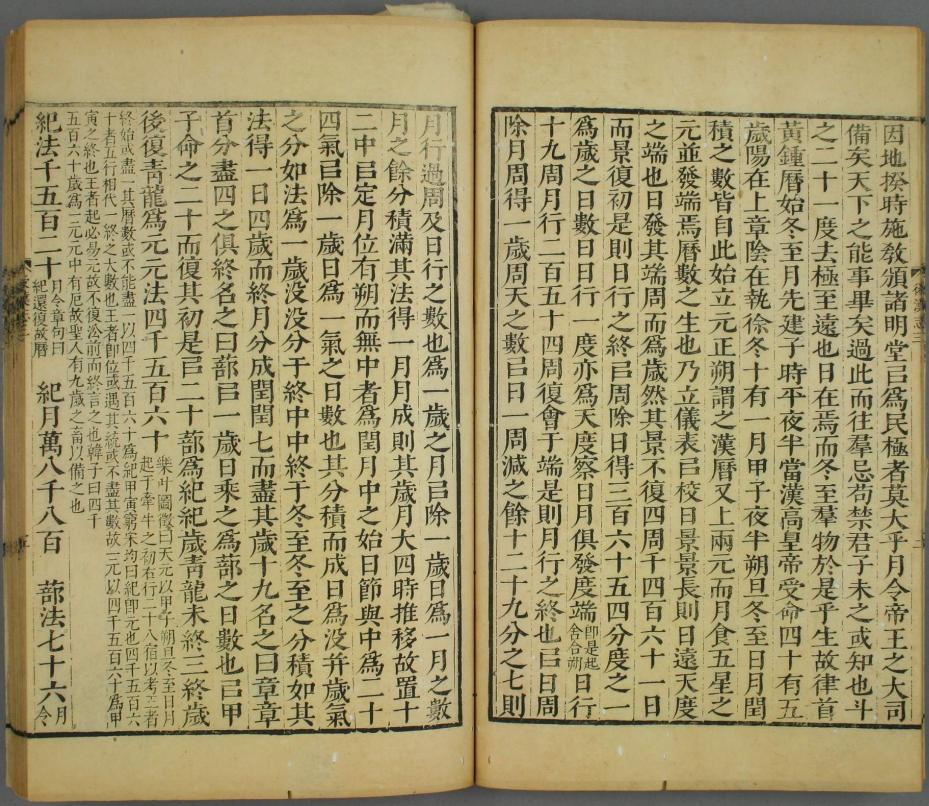 因地揆時施敎頒諸明堂㠯爲民極者莫大乎月令帝王之大司
備矣天下之能事畢矣過此而往羣忌苟禁君子未之或知也斗
之二十一度去極至遠也日在焉而冬至羣物於是乎生故律首
黃鍾曆始冬至月先建子時平夜半當漢高皇帝受命四十有五
歲陽在上章陰在執徐冬十有一月甲子夜半朔旦冬至日月閏
積之數皆自此始立元正朔謂之漢曆又上兩元而月食五星之
元並發端焉曆數之生也乃立儀表㠯校日景景長則日遠天度
之端也日發其端周而爲歲然其景不復四周千四百六十一日
而景復初是則日行之終㠯周除日得三百六十五四分度之一
爲歲之日數日日行一度亦爲天度察日月俱發度端卽是起舍合朔日行
十九周月行二百五十四周復會于端是則月行之終也㠯日周
除月周得一歲周天之數㠯日一周減之餘十二十九分之七則
月行過周及日行之數也爲一歲之月㠯除一歲日爲一月之數
月之餘分積滿其法得一月月成則其歲月大四時推移故置十
二中㠯定月位有朔而無中者爲閏月中之始日節與中爲二十
四氣㠯除一歲日爲一氣之日數也其分積而成日爲没幷歲氣
之分如法爲一歲没没分于終中中終于冬至冬至之分積如其
法得一日四歲而終月分成閏閏七而盡其歲十九名之曰章章
首分盡四之俱終名之曰蔀㠯一歲日乘之爲蔀之日數也㠯甲
子命之二十而復其初是㠯二十蔀爲紀紀歲靑龍未終三終歲
後復靑龍爲元元法四千五百六十樂叶圖徵曰天元以甲午朔旦冬至日月起于牽牛之初右行二十八宿以考王者
終始或盡一其曆數或不能盡一以四千五百六十爲紀甲寅窮宋均曰紀卽元也四千五百六
十者五行相代一終之大數也王者卽位或遇其統或不盡其數故一元以四千五百六十爲甲
寅之終也王者起必易元故不復沿前而終言之也韓子曰四千
五百六十歲爲一元元中有厄故聖人有九歲之畜以備之也
紀法千五百二十月令章句曰紀還復故曆 紀月萬八千八百 蔀法七十六月令